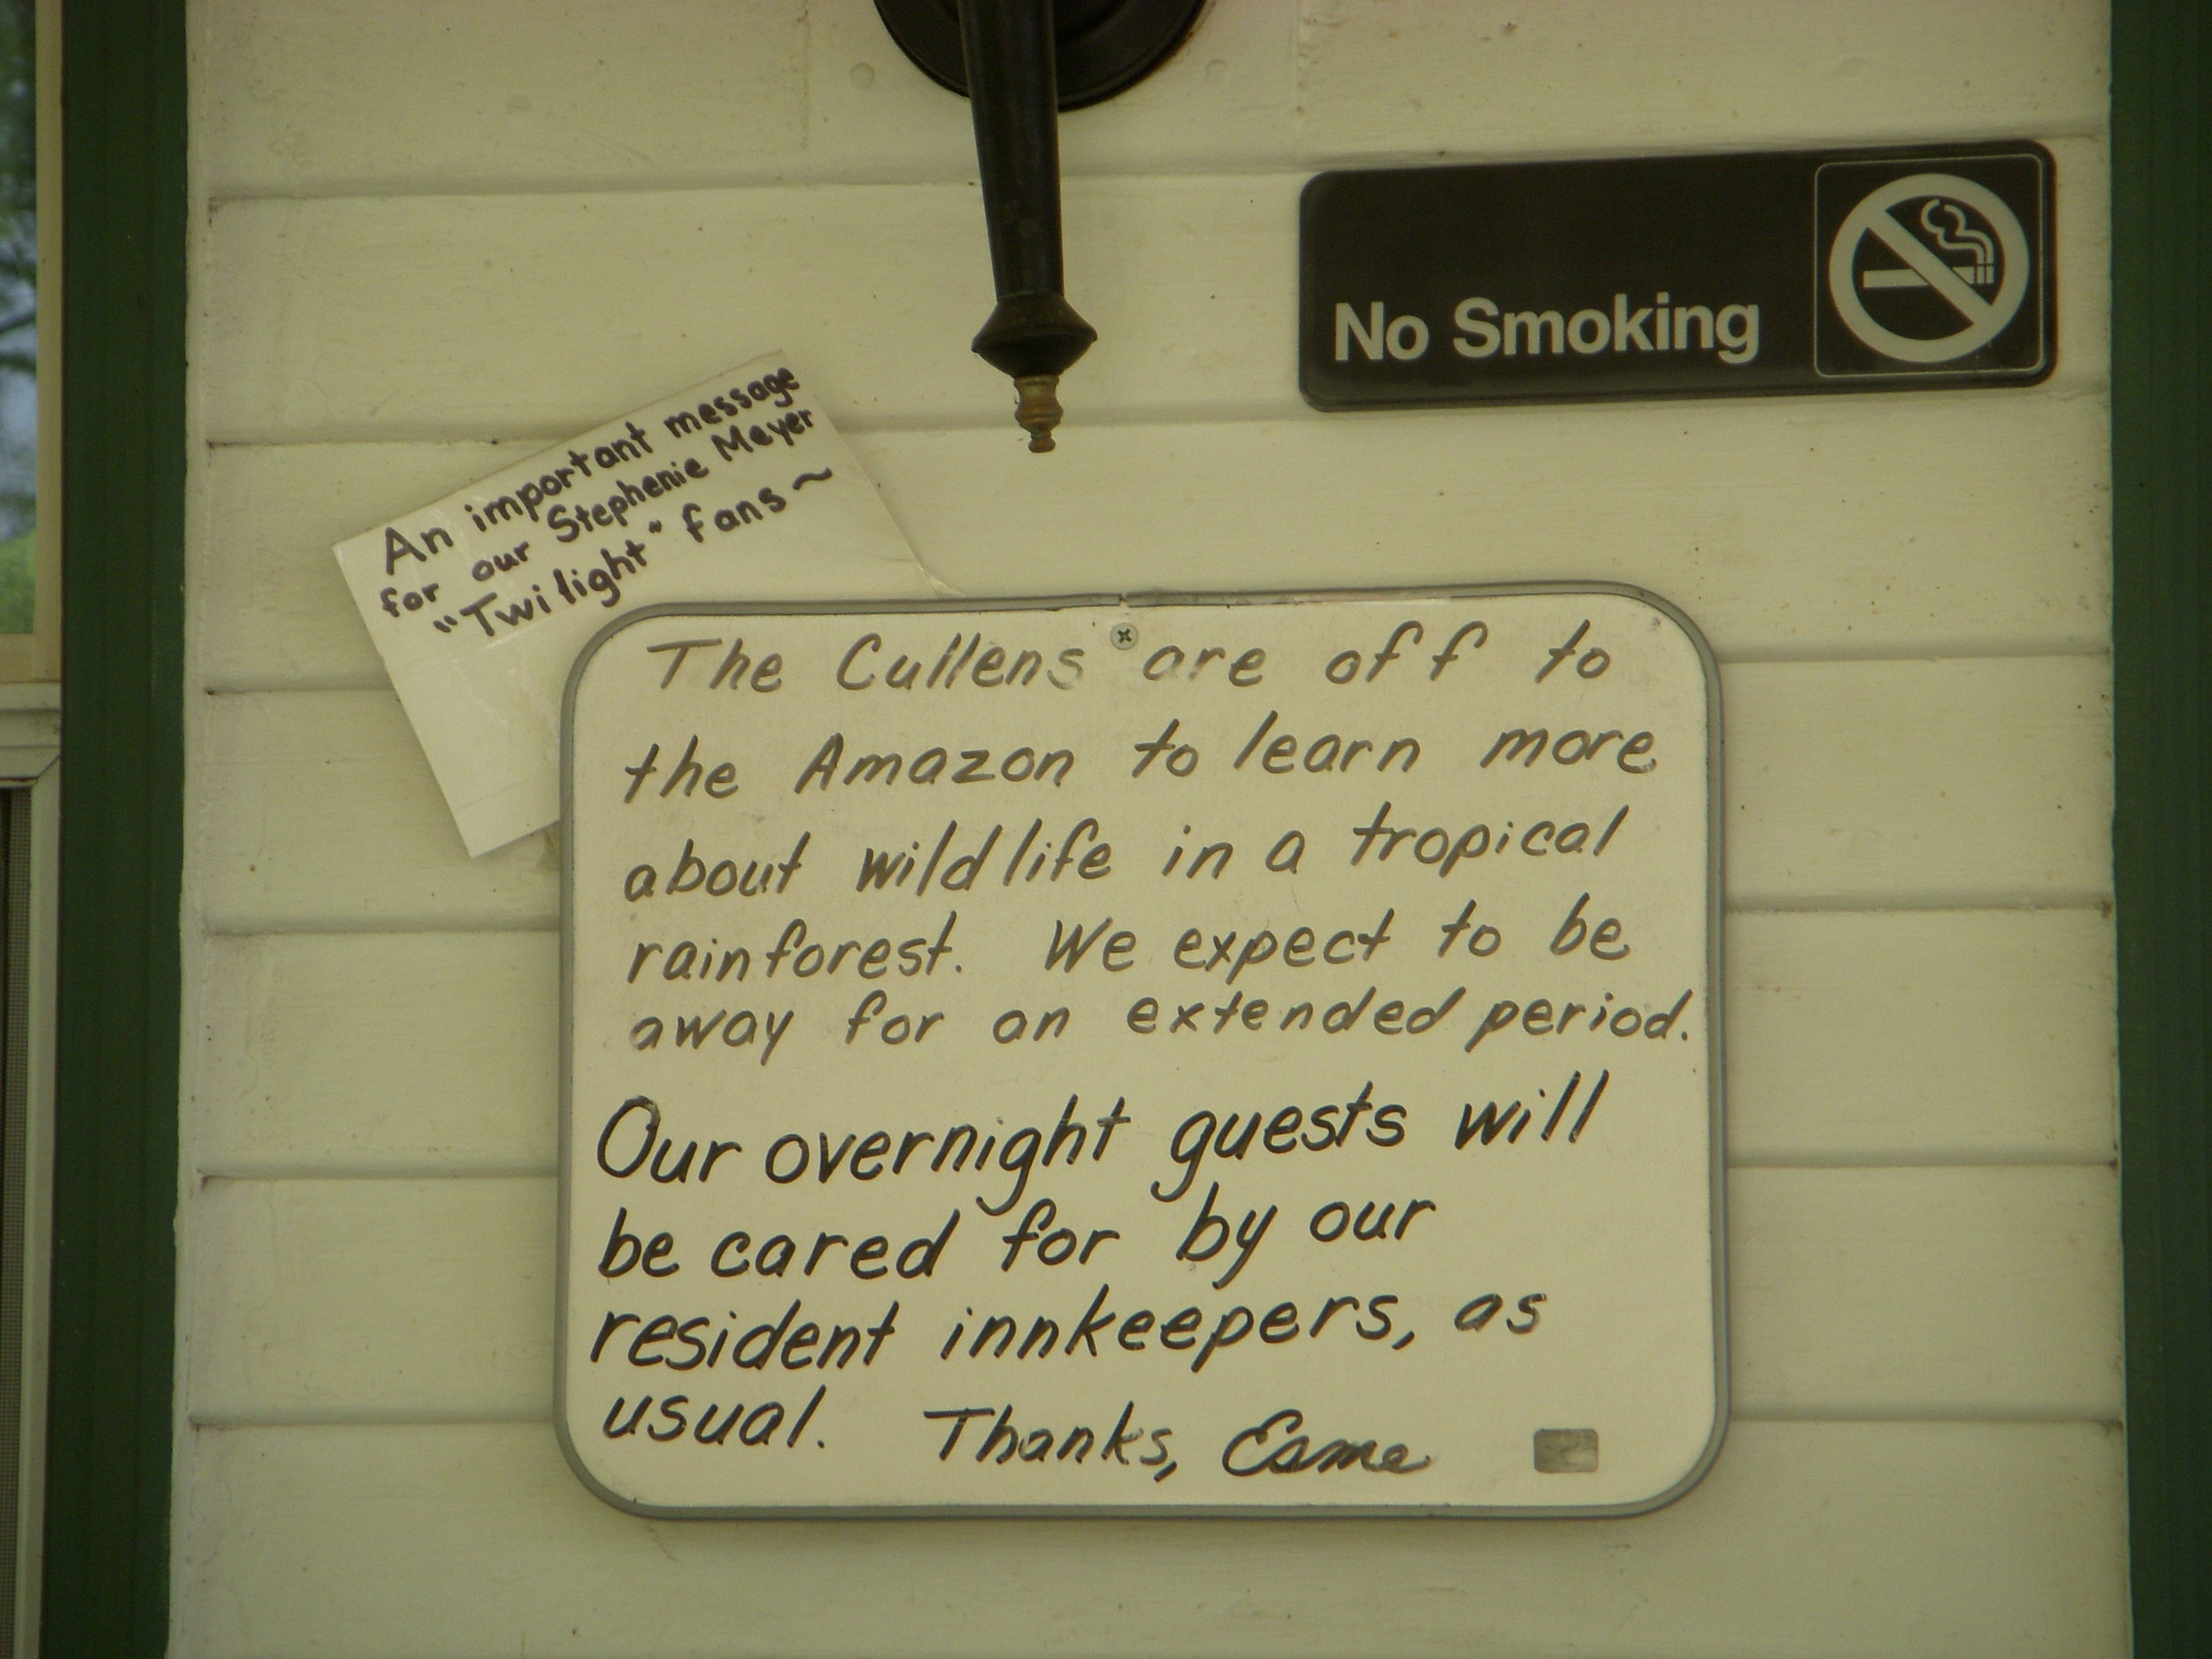 No Smoking
An important message
for our Stephenie Meyer
"Twilight" fans~
The Cullens are off to
the Amazon to learn more
about wildlife in a tropical
rainforest. We expect to be
away for an extended period.
Our overnight guests will
be cared for by our
resident innkeepers, as
usual. Thanks, Esme